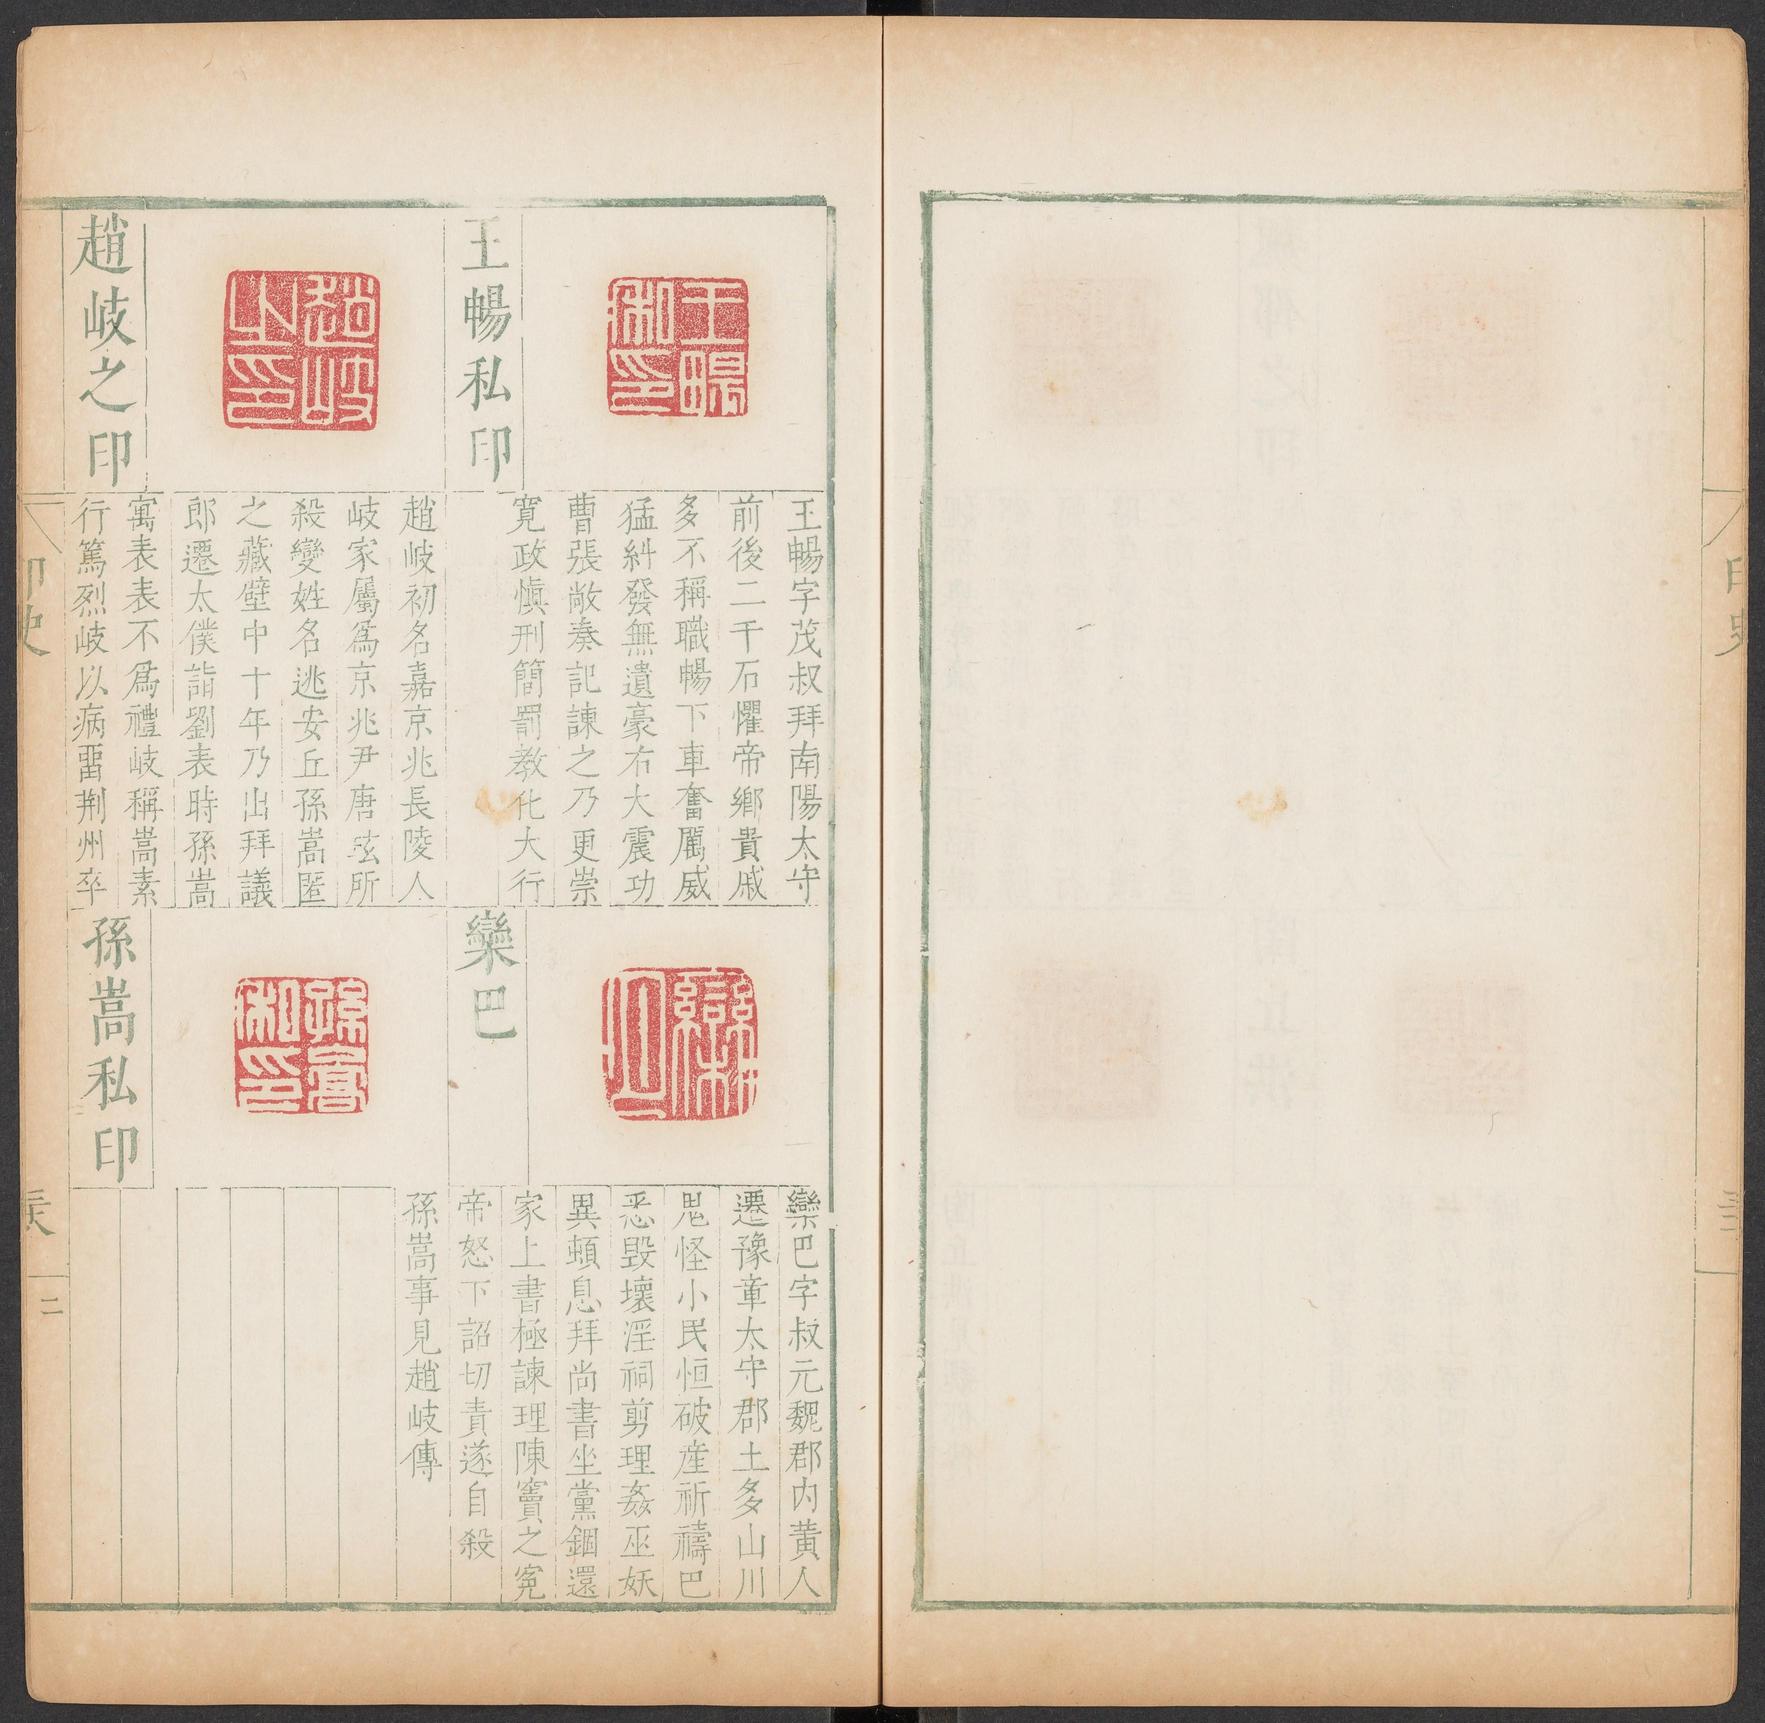 王暢私印
王暢字茂叔拜南陽太守
前後二千石懼帝鄉貴戚
多不稱職暢下車奮厲威
猛糾發無遺豪右大震功
曹張敞奏記諫之乃更崇
寬政慎刑簡罰教化大行
趙岐之印
趙岐初名嘉京兆長陵人
岐家屬為京兆尹唐玹所
殺變姓名逃安丘孫嵩匿
之藏壁中十年乃出拜議
郎遷太僕詣劉表時孫嵩
寓表表不為禮岐稱嵩素
行篤烈岐以病畱荆州卒
欒巴
欒巴字叔元魏郡內黃人
遷豫章太守郡土多山川
鬼怪小民恒破產祈禱巴
悉毀壞淫祠剪理姦巫妖
異頓息拜尚書坐黨錮還
家上書極諫理陳竇之寃
帝怒下詔切責遂自殺
孫嵩私印
孫嵩事見趙岐傳
印史